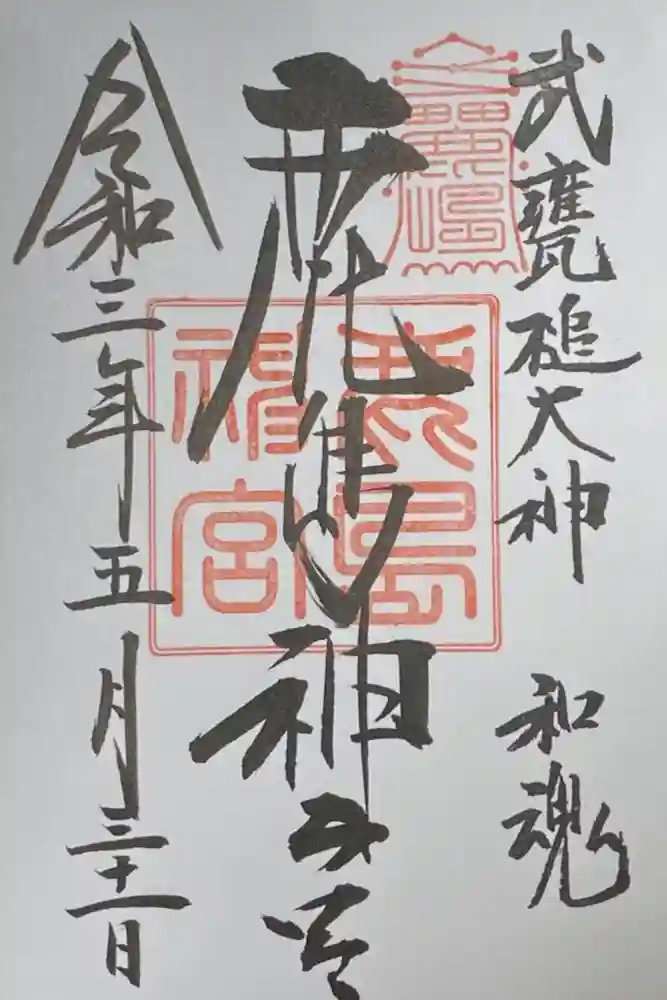 武甕槌大神 和魂
鹿島神宮
令和三年五月三十一日
鹿島
神宮